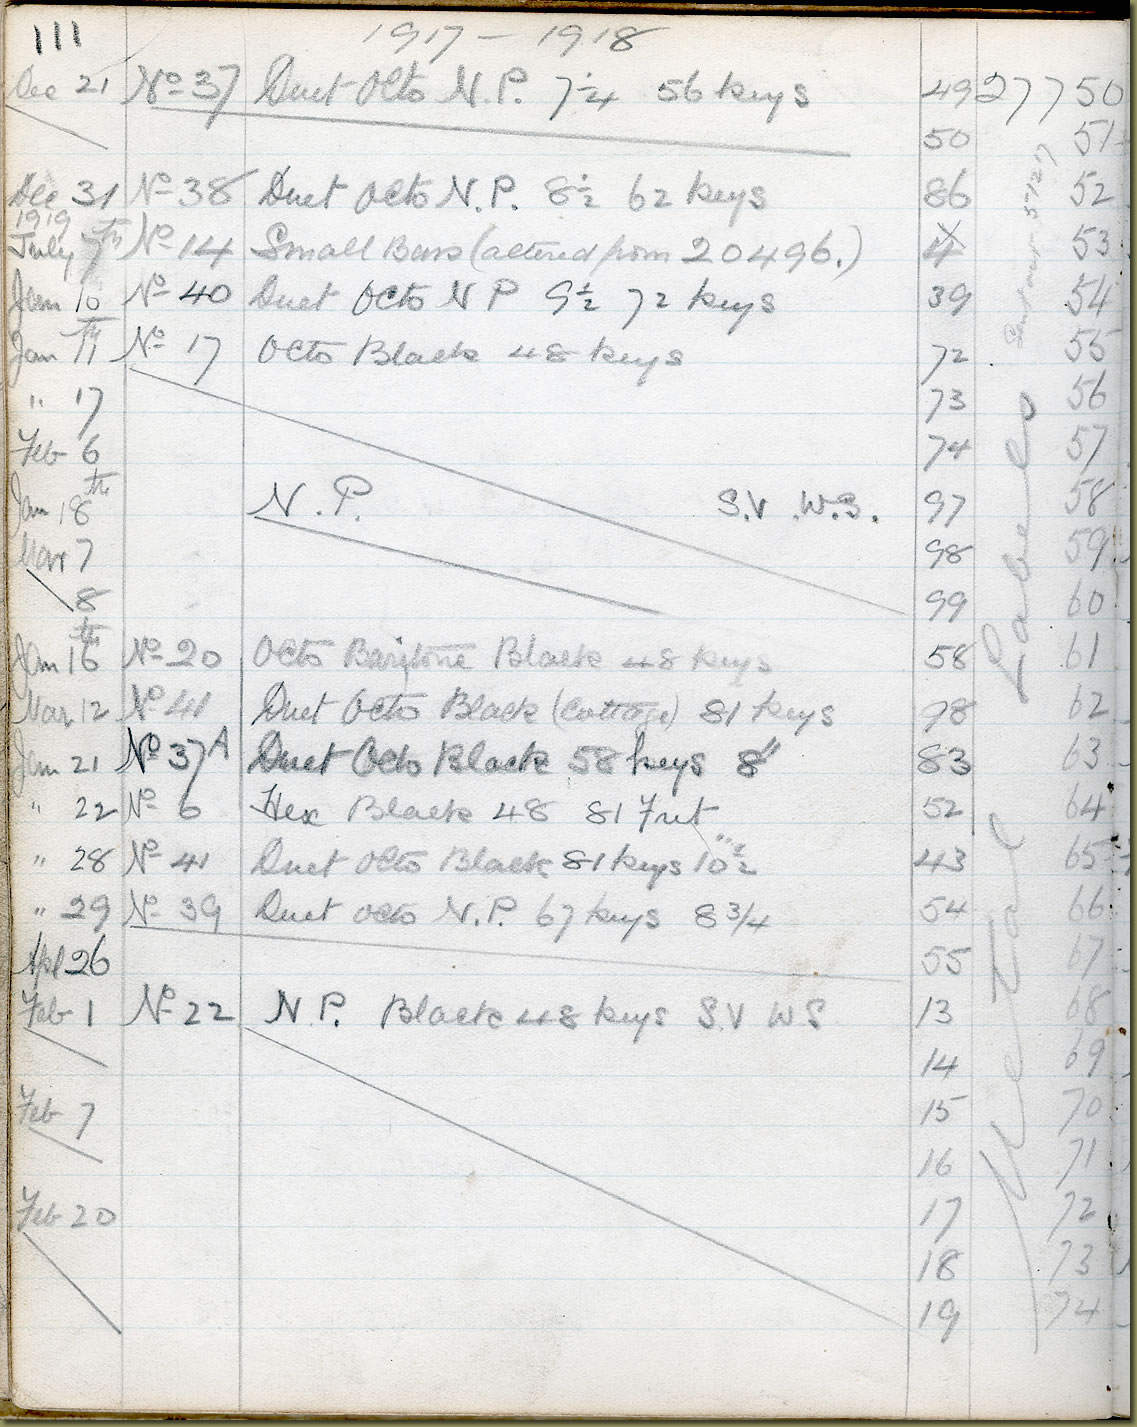 111 1917 – 1918
Dec 21 No 37 Duet Octo N.P. 7 1/4 56 keys 49 27750
50 51
Dec 31 No 38 Duet Octo N.P. 8 1/2 62 keys 86 52
1919
July 7th No 14 Small Bass (altered from 20496.) 4 53
Jan 10 No 40 Duet Octo N P 9 1/2 72 keys 39 54
Jan 11th No 17 Octo Black 48 keys 72 55
" 17 73 56
Feb 6 74 57
Jan 18th N.P. S.V. W.S. 97 58
Mar 7 98 59
8 99 60
Jan 16th No 20 Octo Baritone Black 48 keys 58 61
Mar 12 No 41 Duet Octo Black (Cottage) 81 keys 98 62
Jan 21 No 37A Duet Octo Black 58 keys 8" 83 63
" 22 No 6 Hex Black 48 81 Fret 52 64
" 28 No 41 Duet Octo Black 81 keys 10 1/2" 43 65
" 29 No 39 Duet Octo N.P. 67 keys 8 3/4 54 66
Apl 26 55 67
Feb 1 No 22 N.P. Black 48 keys S.V W S 13 68
14 69
Feb 7 15 70
16 71
Feb 20 17 72
18 73
19 74
Labels